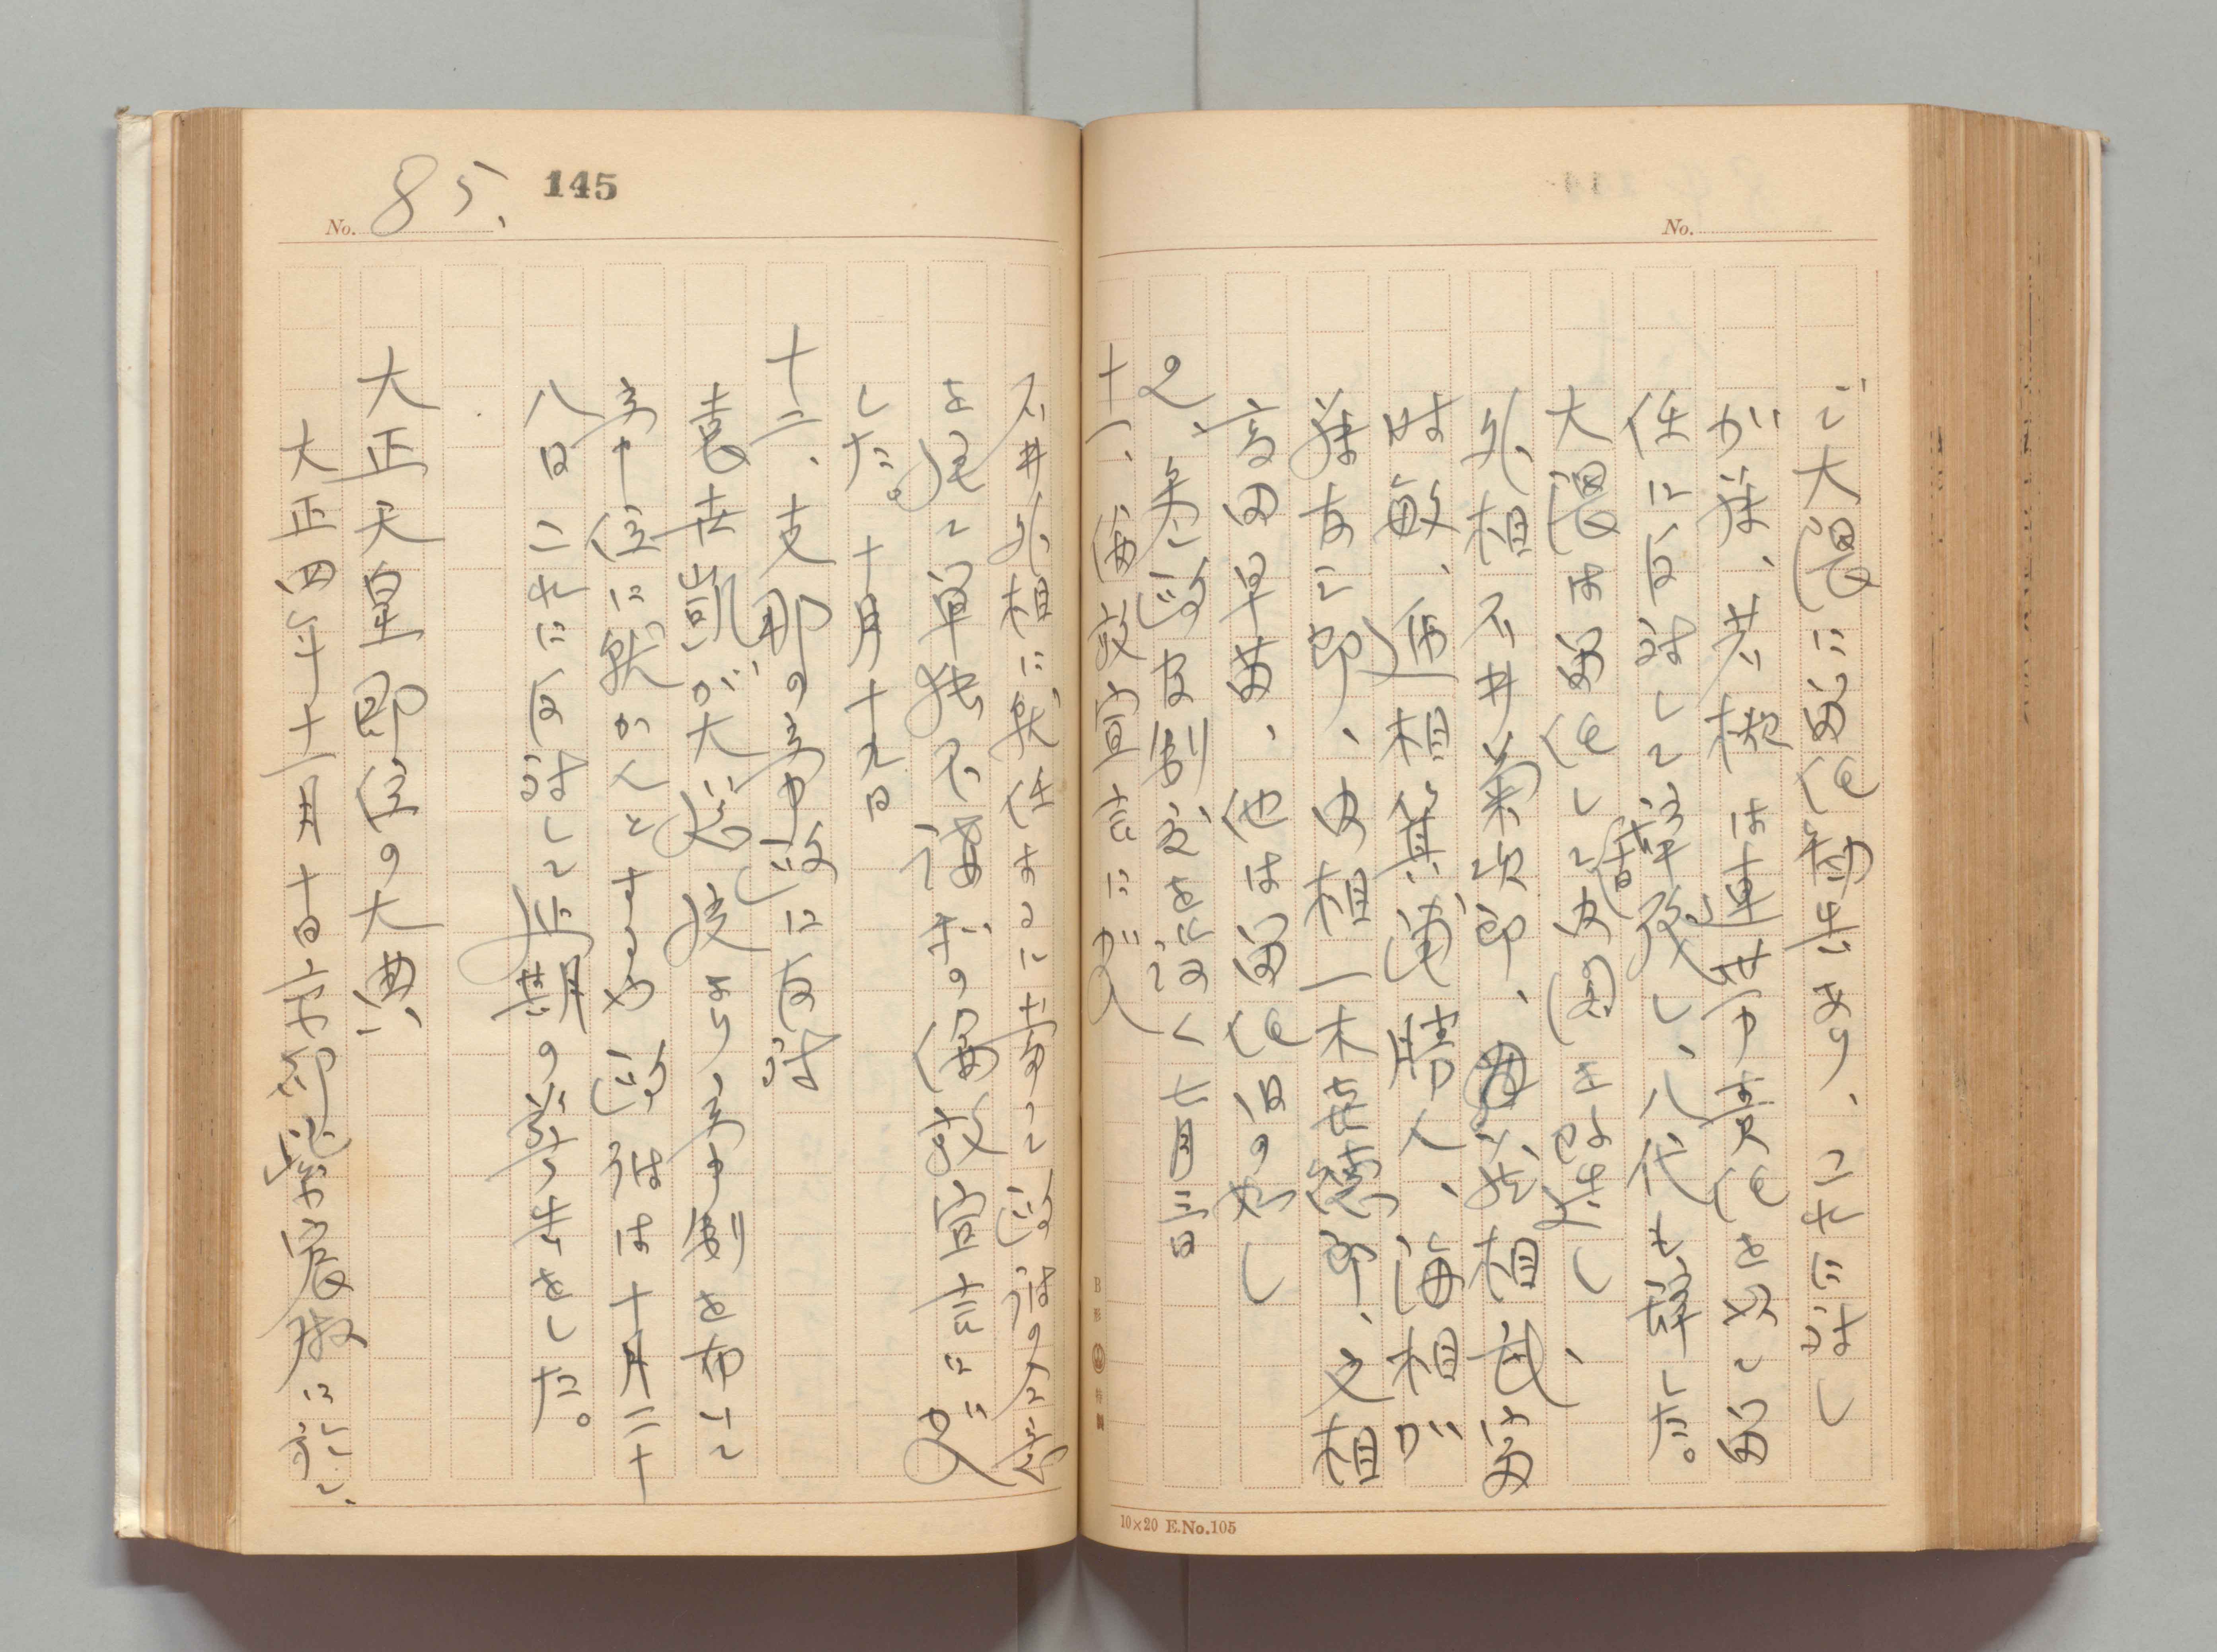 No.
で大隈に留任勧告あり、これに対し
が藤、若槻は連帯責任を以て留
任に反対して辞職し、八代も辞した。
大隈は留任して内閣を改造し、
外相石井菊次郎、蔵相武富
時敏、逓相箕浦勝人、海相加
藤友三郎、内相一木喜徳郎、文相
高田早苗、他は留任旧の如し
2、参政官制度を設く七月三日
十一、倫敦宣言に加入
10×20 E.No.105
145
No. 85.
石井外相に就任するに当って政府の公債
を以て単独不講和の倫敦宣言に加入
した。 十月十九日
十二、支那の帝政に反対
袁世凱が大総統より帝制を布いて
帝位に就かんとするや政府は十月二十
八日これに反対して延期の勧告をした。
大正天皇即位の大典
大正四年十一月十日京都紫宸殿に於て、